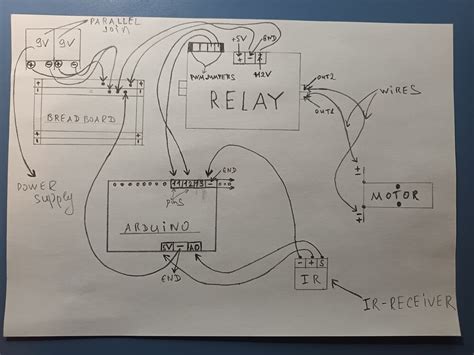 PARALLEL
JOIN
9V 9V
+5V
GND
+12V
PWM JUMPERS
RELAY
OUT2
OUT1
WIRES
BREADBOARD
POWER
SUPPLY
GND
PINS
ARDUINO
5V - A0
GND
- + S
IR
IR-RECEIVER
+ -
MOTOR
+ -